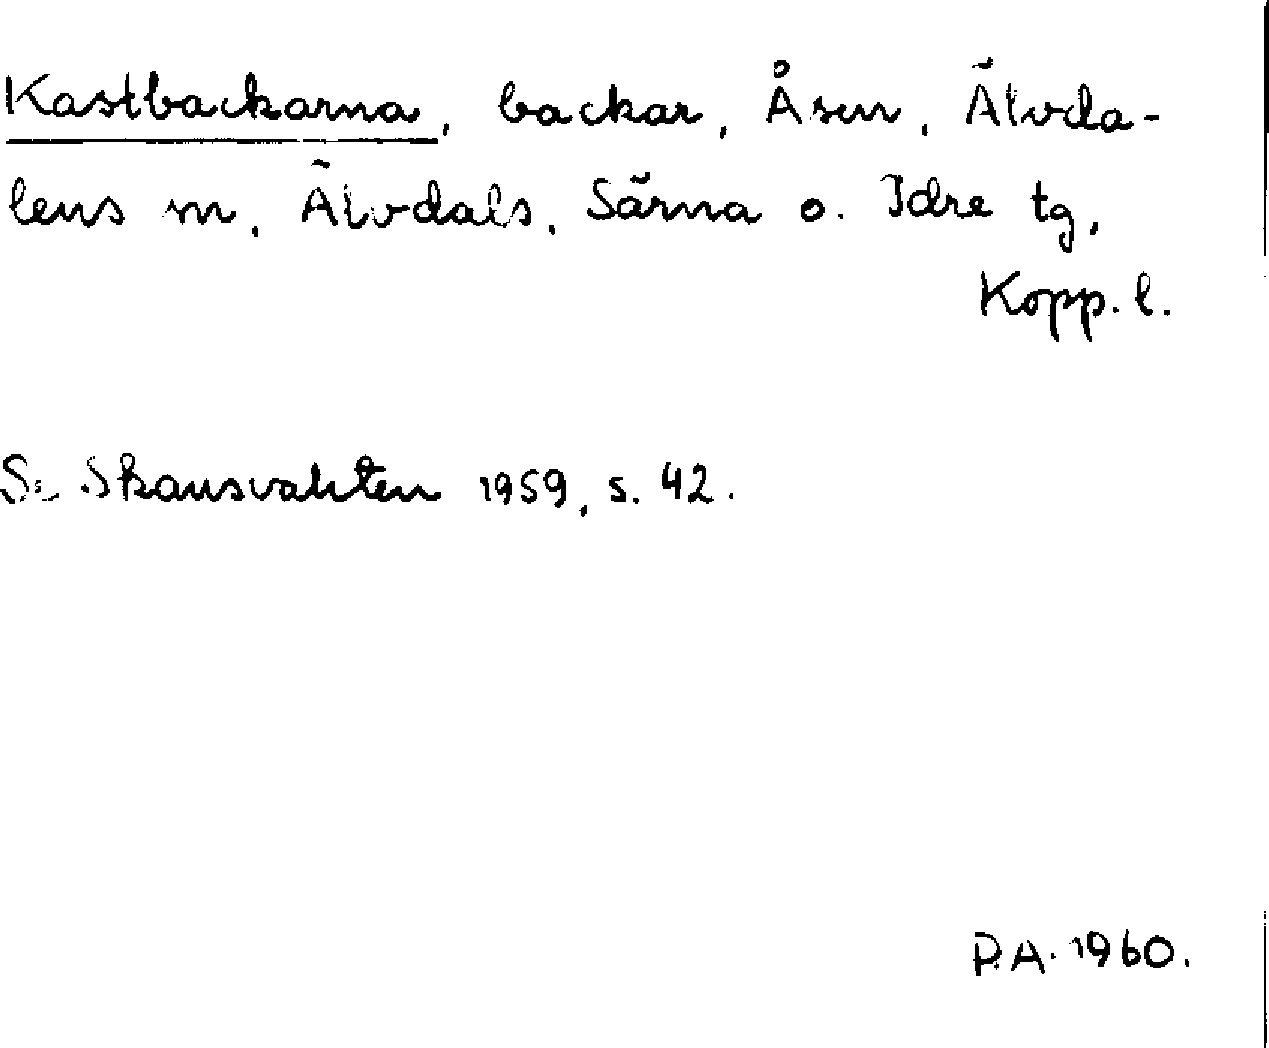 Kastbackarna, backar, Åsen, Älvda-
lens m, Älvdals, Särna o. Idre tg,
Kopp. l.
Se Skansvakten 1959, s. 42.
P.A. 1960.